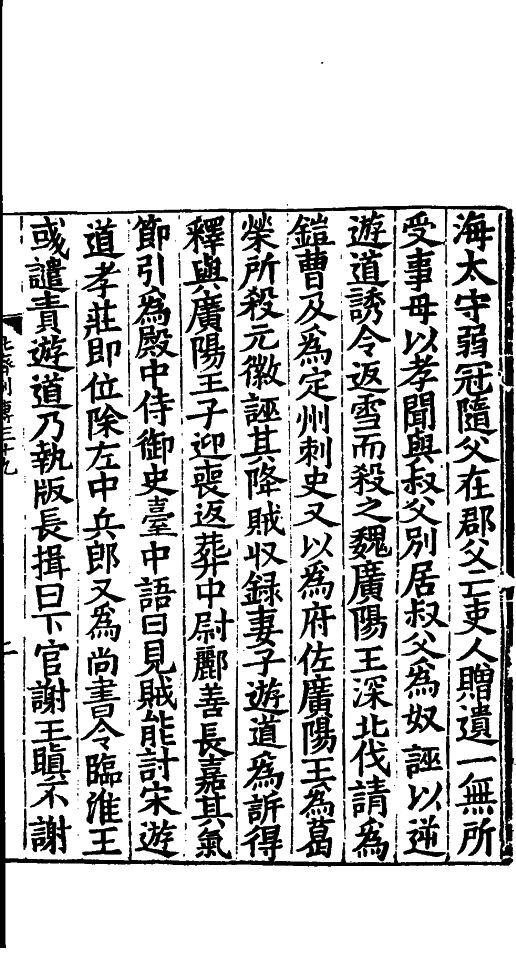 海太守弱冠隨父在郡父亡吏人贈遺一無所
受事母以孝聞與叔父別居叔父爲奴誣以逆
遊道誘令返雪而殺之魏廣陽王深北伐請爲
鎧曹及爲定州刺史又以爲府佐廣陽王爲葛
榮所殺元徽誣其降賊收録妻子遊道爲訴得
釋與廣陽王子迎喪返葬中尉酈善長嘉其氣
節引爲殿中侍御史臺中語曰見賊能討宋遊
道孝莊即位除左中兵郎又爲尚書令臨淮王
彧譴責遊道乃執版長揖曰下官謝王瞋不謝
北齊列傳三十九
二